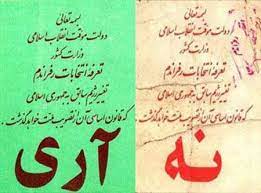 بسمه تعالی
دولت موقت انقلاب اسلامی
وزارت کشور
تعرفه انتخابات رفراندم
تغییر رژیم سابق به جمهوری اسلامی
که قانون اساسی آن از تصویب ملت خواهد گذشت.
نه
بسمه تعالی
دولت موقت انقلاب اسلامی
وزارت کشور
تعرفه انتخابات رفراندم
تغییر رژیم سابق به جمهوری اسلامی
که قانون اساسی آن از تصویب ملت خواهد گذشت.
آری